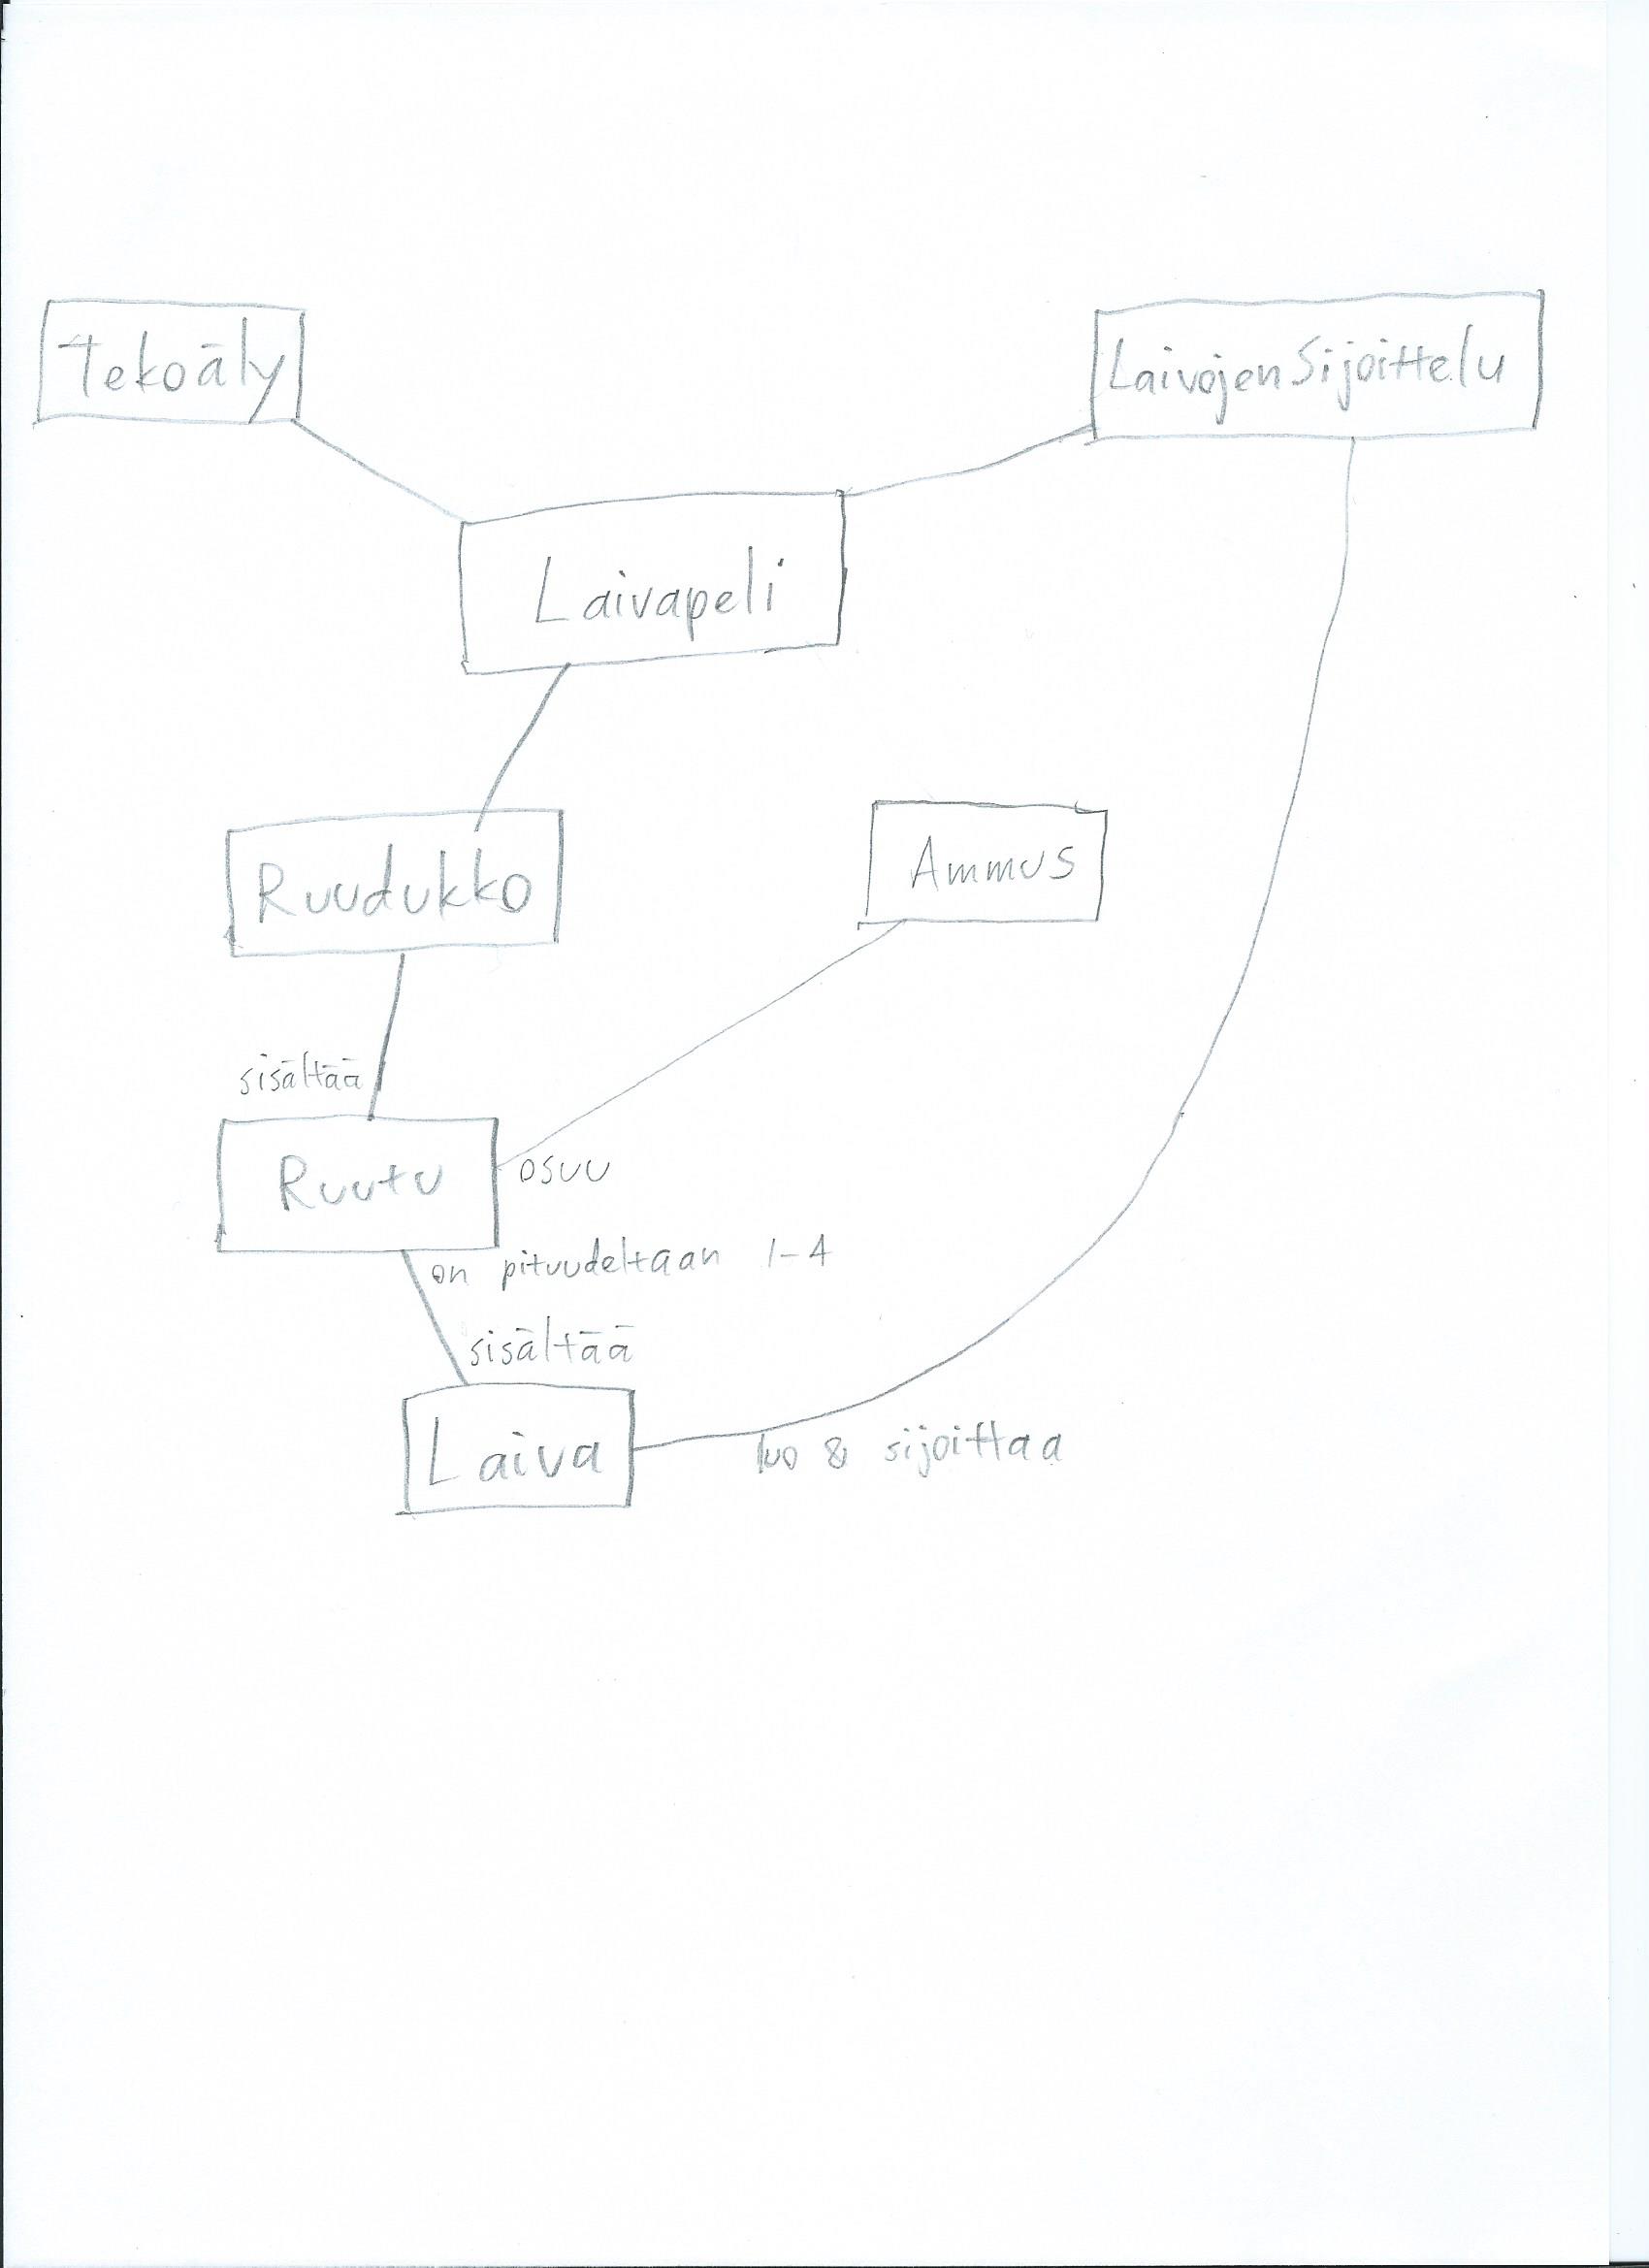 Tekoäly
LaivojenSijoittelu
Laivapeli
Ruudukko
Ammus
sisältää
Ruutu
osuu
on pituudeltaan 1-4
sisältää
Laiva
luo & sijoittaa